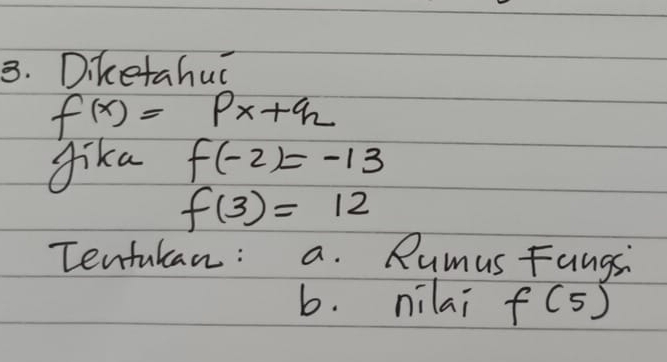 3. Diketahui
f(x) = Px+q
Jika f(-2)= -13
f(3) = 12
Tentukan : a. Rumus Fungsi
b. nilai f(5)